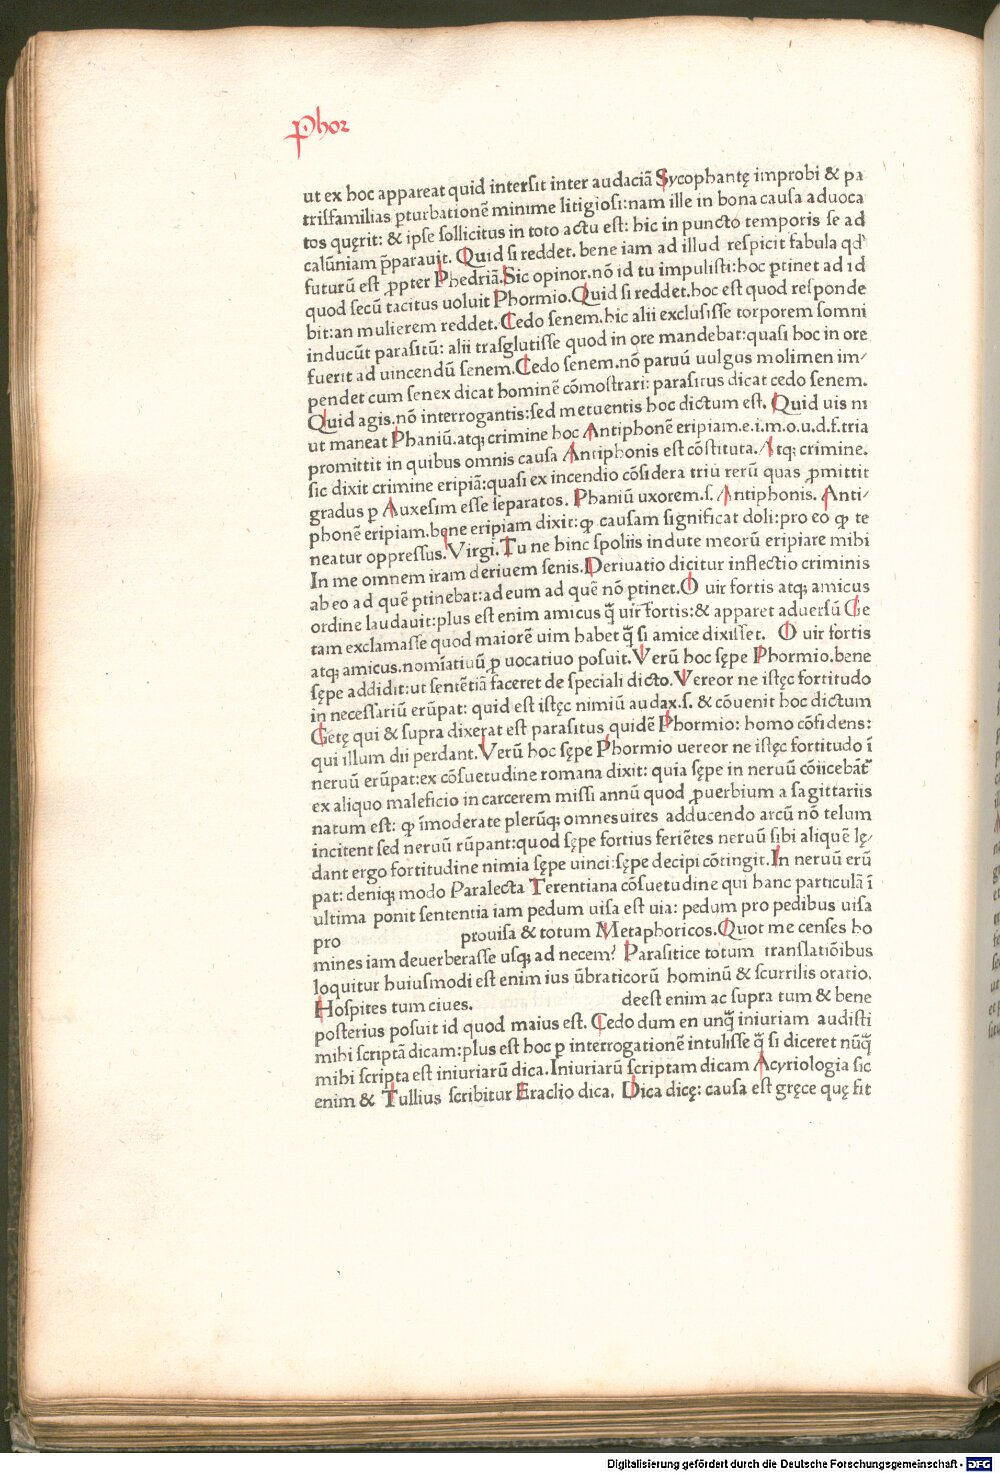 Phor
ut ex hoc appareat quid intersit inter audaciã Sycophantę improbi & pa
trisfamilias ꝑturbationẽ minime litigiosi:nam ille in bona causa aduoca
tos quęrit: & ipse sollicitus in toto actu est: hic in puncto temporis se ad
calũniam p̃parauit. Quid si reddet. bene iam ad illud respicit fabula qd̕
futurũ est ꝓpter Phedriã.Sic opinor.nõ id tu impulisti:hoc ꝑtinet ad id
quod secũ tacitus uoluit Phormio.Quid si reddet.hoc est quod responde
bit:an mulierem reddet. Cedo senem.hic alii exclusisse torporem somni
inducũt parasitũ: alii trasglutisse quod in ore mandebat:quasi hoc in ore
fuerit ad uincendũ senem.Cedo senem.nõ paruũ uulgus molimen im/
pendet cum senex dicat hominẽ cõmostrari: parasitus dicat cedo senem.
Quid agis.nõ interrogantis:sed metuentis hoc dictum est. Quid uis ni
ut maneat Phaniũ.atqꝫ crimine hoc Antiphonẽ eripiam.e.i.m.o.u.d.f.tria
promittit in quibus omnis causa Antiphonis est cõstituta. Atqꝫ crimine.
sic dixit crimine eripiã:quasi ex incendio cõsidera triũ rerũ quas ꝓmittit
gradus ꝑ Auxesim esse separatos. Phaniũ uxorem.s. Antiphonis. Anti/
phonẽ eripiam.bene eripiam dixit: ꝙ causam significat doli:pro eo ꝙ te
neatur oppressus.Virgi.Tu ne hinc spoliis indute meorũ eripiare mihi
In me omnem iram deriuem senis.Deriuatio dicitur inflectio criminis
ab eo ad quẽ ptinebat:ad eum ad quẽ nõ ꝑtinet.O uir fortis atqꝫ amicus
ordine laudauit:plus est enim amicus q̃ uir fortis:& apparet aduersũ Ge
tam exclamasse quod maiorẽ uim habet q̃ si amice dixisset. O uir fortis
atqꝫ amicus.nomĩatiuũ ꝓ uocatiuo posuit.Verũ hoc sępe Phormio.bene
sępe addidit:ut sentẽtiã faceret de speciali dicto.Vereor ne istęc fortitudo
in necessariũ erũpat: quid est istęc nimiũ audax.s. & cõuenit hoc dictum
Getę qui & supra dixerat est parasitus quidẽ Phormio: homo cõfidens:
qui illum dii perdant.Verũ hoc sępe Phormio uereor ne istęc fortitudo ĩ
neruũ erũpat:ex cõsuetudine romana dixit: quia sępe in neruũ cõiiciebãt᷑
ex aliquo maleficio in carcerem missi annũ quod ꝓuerbium a sagittariis
natum est: ꝙ ĩmoderate plerũqꝫ omnesuires adducendo arcũ nõ telum
incitent sed neruũ rũpant:quod sępe fortius feriẽtes neruũ sibi aliquẽ lę/
dant ergo fortitudine nimia sępe uinci:sępe decipi cõtingit.In neruũ erũ
pat: deniqꝫ modo Paralecta Terentiana cõsuetudine qui hanc particulã ĩ
ultima ponit sententia iam pedum uisa est uia: pedum pro pedibus uisa
pro prouisa & totum Metaphoricos.Quot me censes ho
mines iam deuerberasse usqꝫ ad necem? Parasitice totum translatiõibus
loquitur huiusmodi est enim ius ũbraticorũ hominũ & scurrilis oratio.
Hospites tum ciues. deest enim ac supra tum & bene
posterius posuit id quod maius est. Cedo dum en unq̃ iniuriam audisti
mihi scriptã dicam:plus est hoc ꝑ interrogationẽ intulisse q̃ si diceret nũq̃
mihi scripta est iniuriarũ dica.Iniuriarũ scriptam dicam Acyriologia sic
enim & Tullius scribitur Eraclio dica. Dica dicę: causa est gręce quę fit
Digitalisierung gefördert durch die Deutsche Forschungsgemeinschaft - DFG